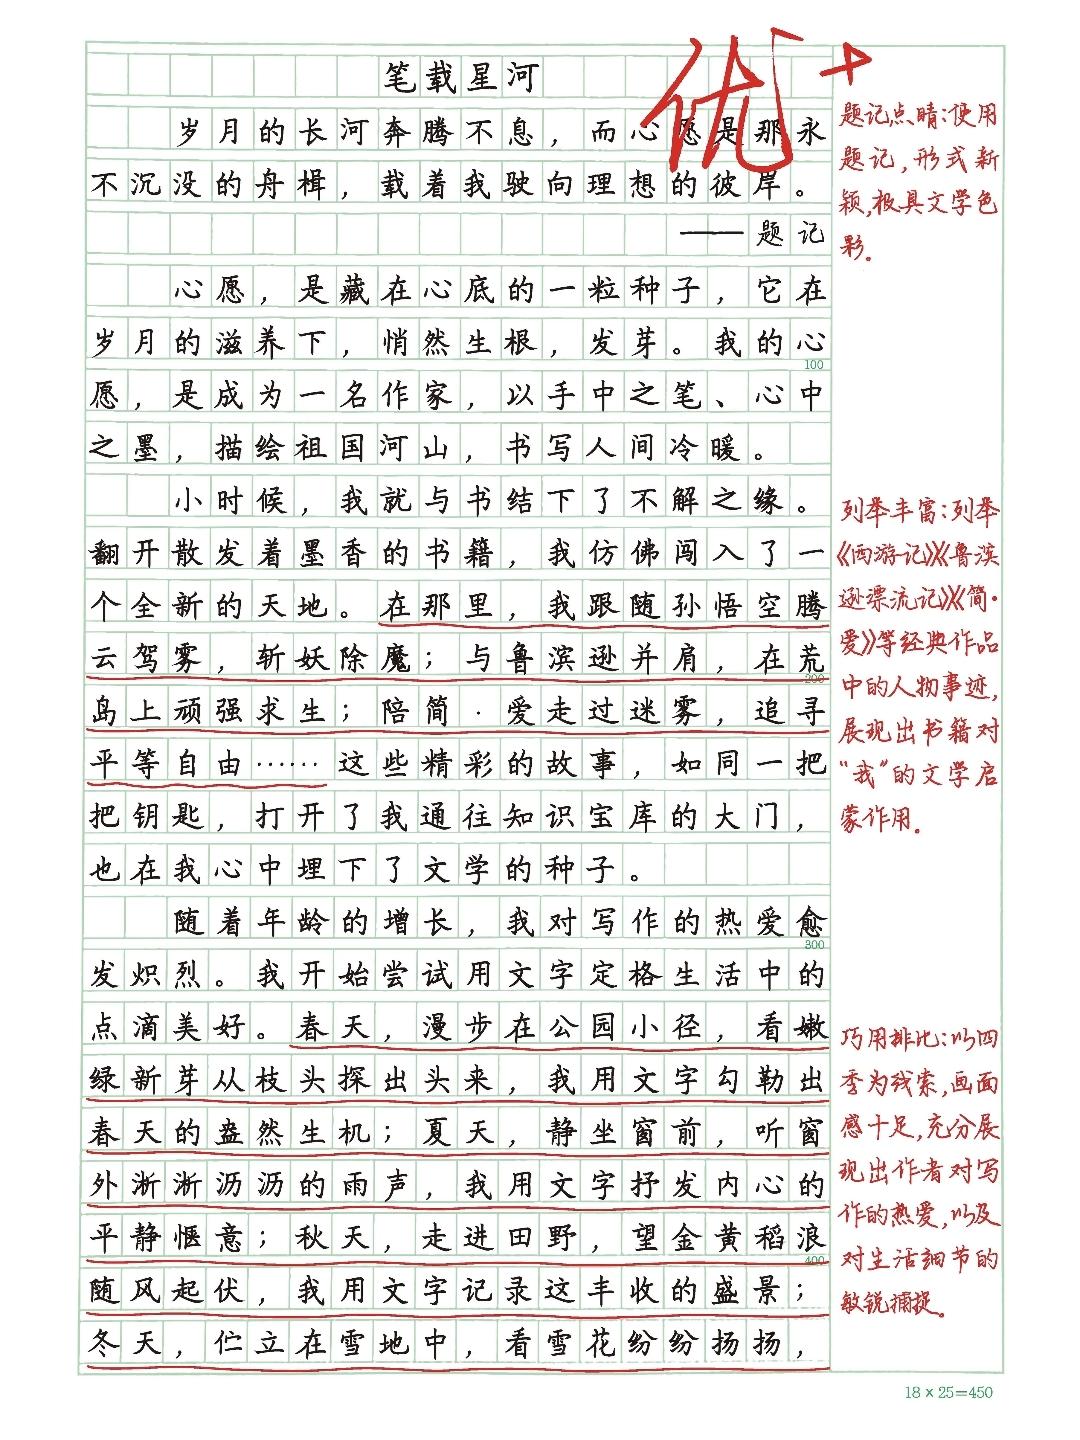 笔载星河
优+
岁月的长河奔腾不息，而心愿是那永
不沉没的舟楫，载着我驶向理想的彼岸。
——题记
心愿，是藏在心底的一粒种子，它在
岁月的滋养下，悄然生根，发芽。我的心
100
愿，是成为一名作家，以手中之笔、心中
之墨，描绘祖国河山，书写人间冷暖。
小时候，我就与书结下了不解之缘。
翻开散发着墨香的书籍，我仿佛闯入了一
个全新的天地。在那里，我跟随孙悟空腾
云驾雾，斩妖除魔；与鲁滨逊并肩，在荒
200
岛上顽强求生；陪简·爱走过迷雾，追寻
平等自由……这些精彩的故事，如同一把
把钥匙，打开了我通往知识宝库的大门，
也在我心中埋下了文学的种子。
随着年龄的增长，我对写作的热爱愈
300
发炽烈。我开始尝试用文字定格生活中的
点滴美好。春天，漫步在公园小径，看嫩
绿新芽从枝头探出头来，我用文字勾勒出
春天的盎然生机；夏天，静坐窗前，听窗
外淅淅沥沥的雨声，我用文字抒发内心的
平静惬意；秋天，走进田野，望金黄稻浪
400
随风起伏，我用文字记录这丰收的盛景；
冬天，伫立在雪地中，看雪花纷纷扬扬，
题记点睛：使用
题记，形式新
颖，极具文学色
彩。
列举丰富：列举
《西游记》《鲁滨
逊漂流记》《简·
爱》等经典作品
中的人物事迹，
展现出书籍对
“我”的文学启
蒙作用。
巧用排比：以四
季为线索，画面
感十足，充分展
现出作者对写
作的热爱，以及
对生活细节的
敏锐捕捉。
18×25=450